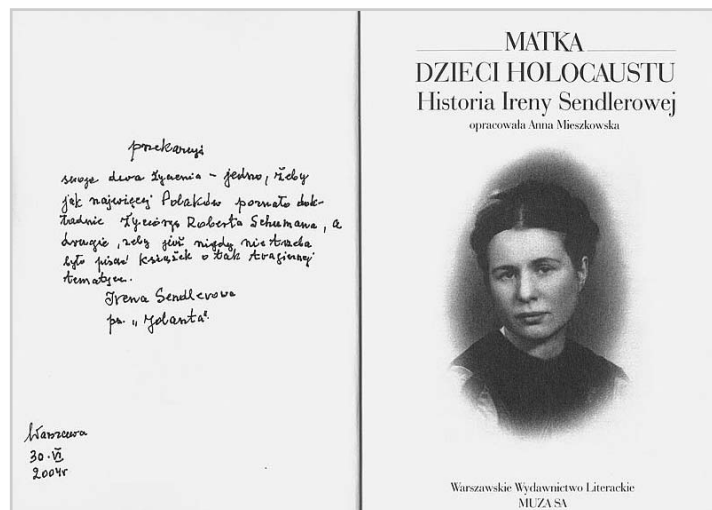 przekazuję
swoje dwa życzenia – jedno, żeby
jak najwięcej Polaków poznało dok-
ładnie życiorys Roberta Schumana, a
drugie, żeby już nigdy nie trzeba
było pisać książek o tak tragicznej
tematyce.
Irena Sendlerowa
ps. „Jolanta”.
Warszawa
30.VI
2004r
MATKA
DZIECI HOLOCAUSTU
Historia Ireny Sendlerowej
opracowała Anna Mieszkowska
Warszawskie Wydawnictwo Literackie
MUZA SA